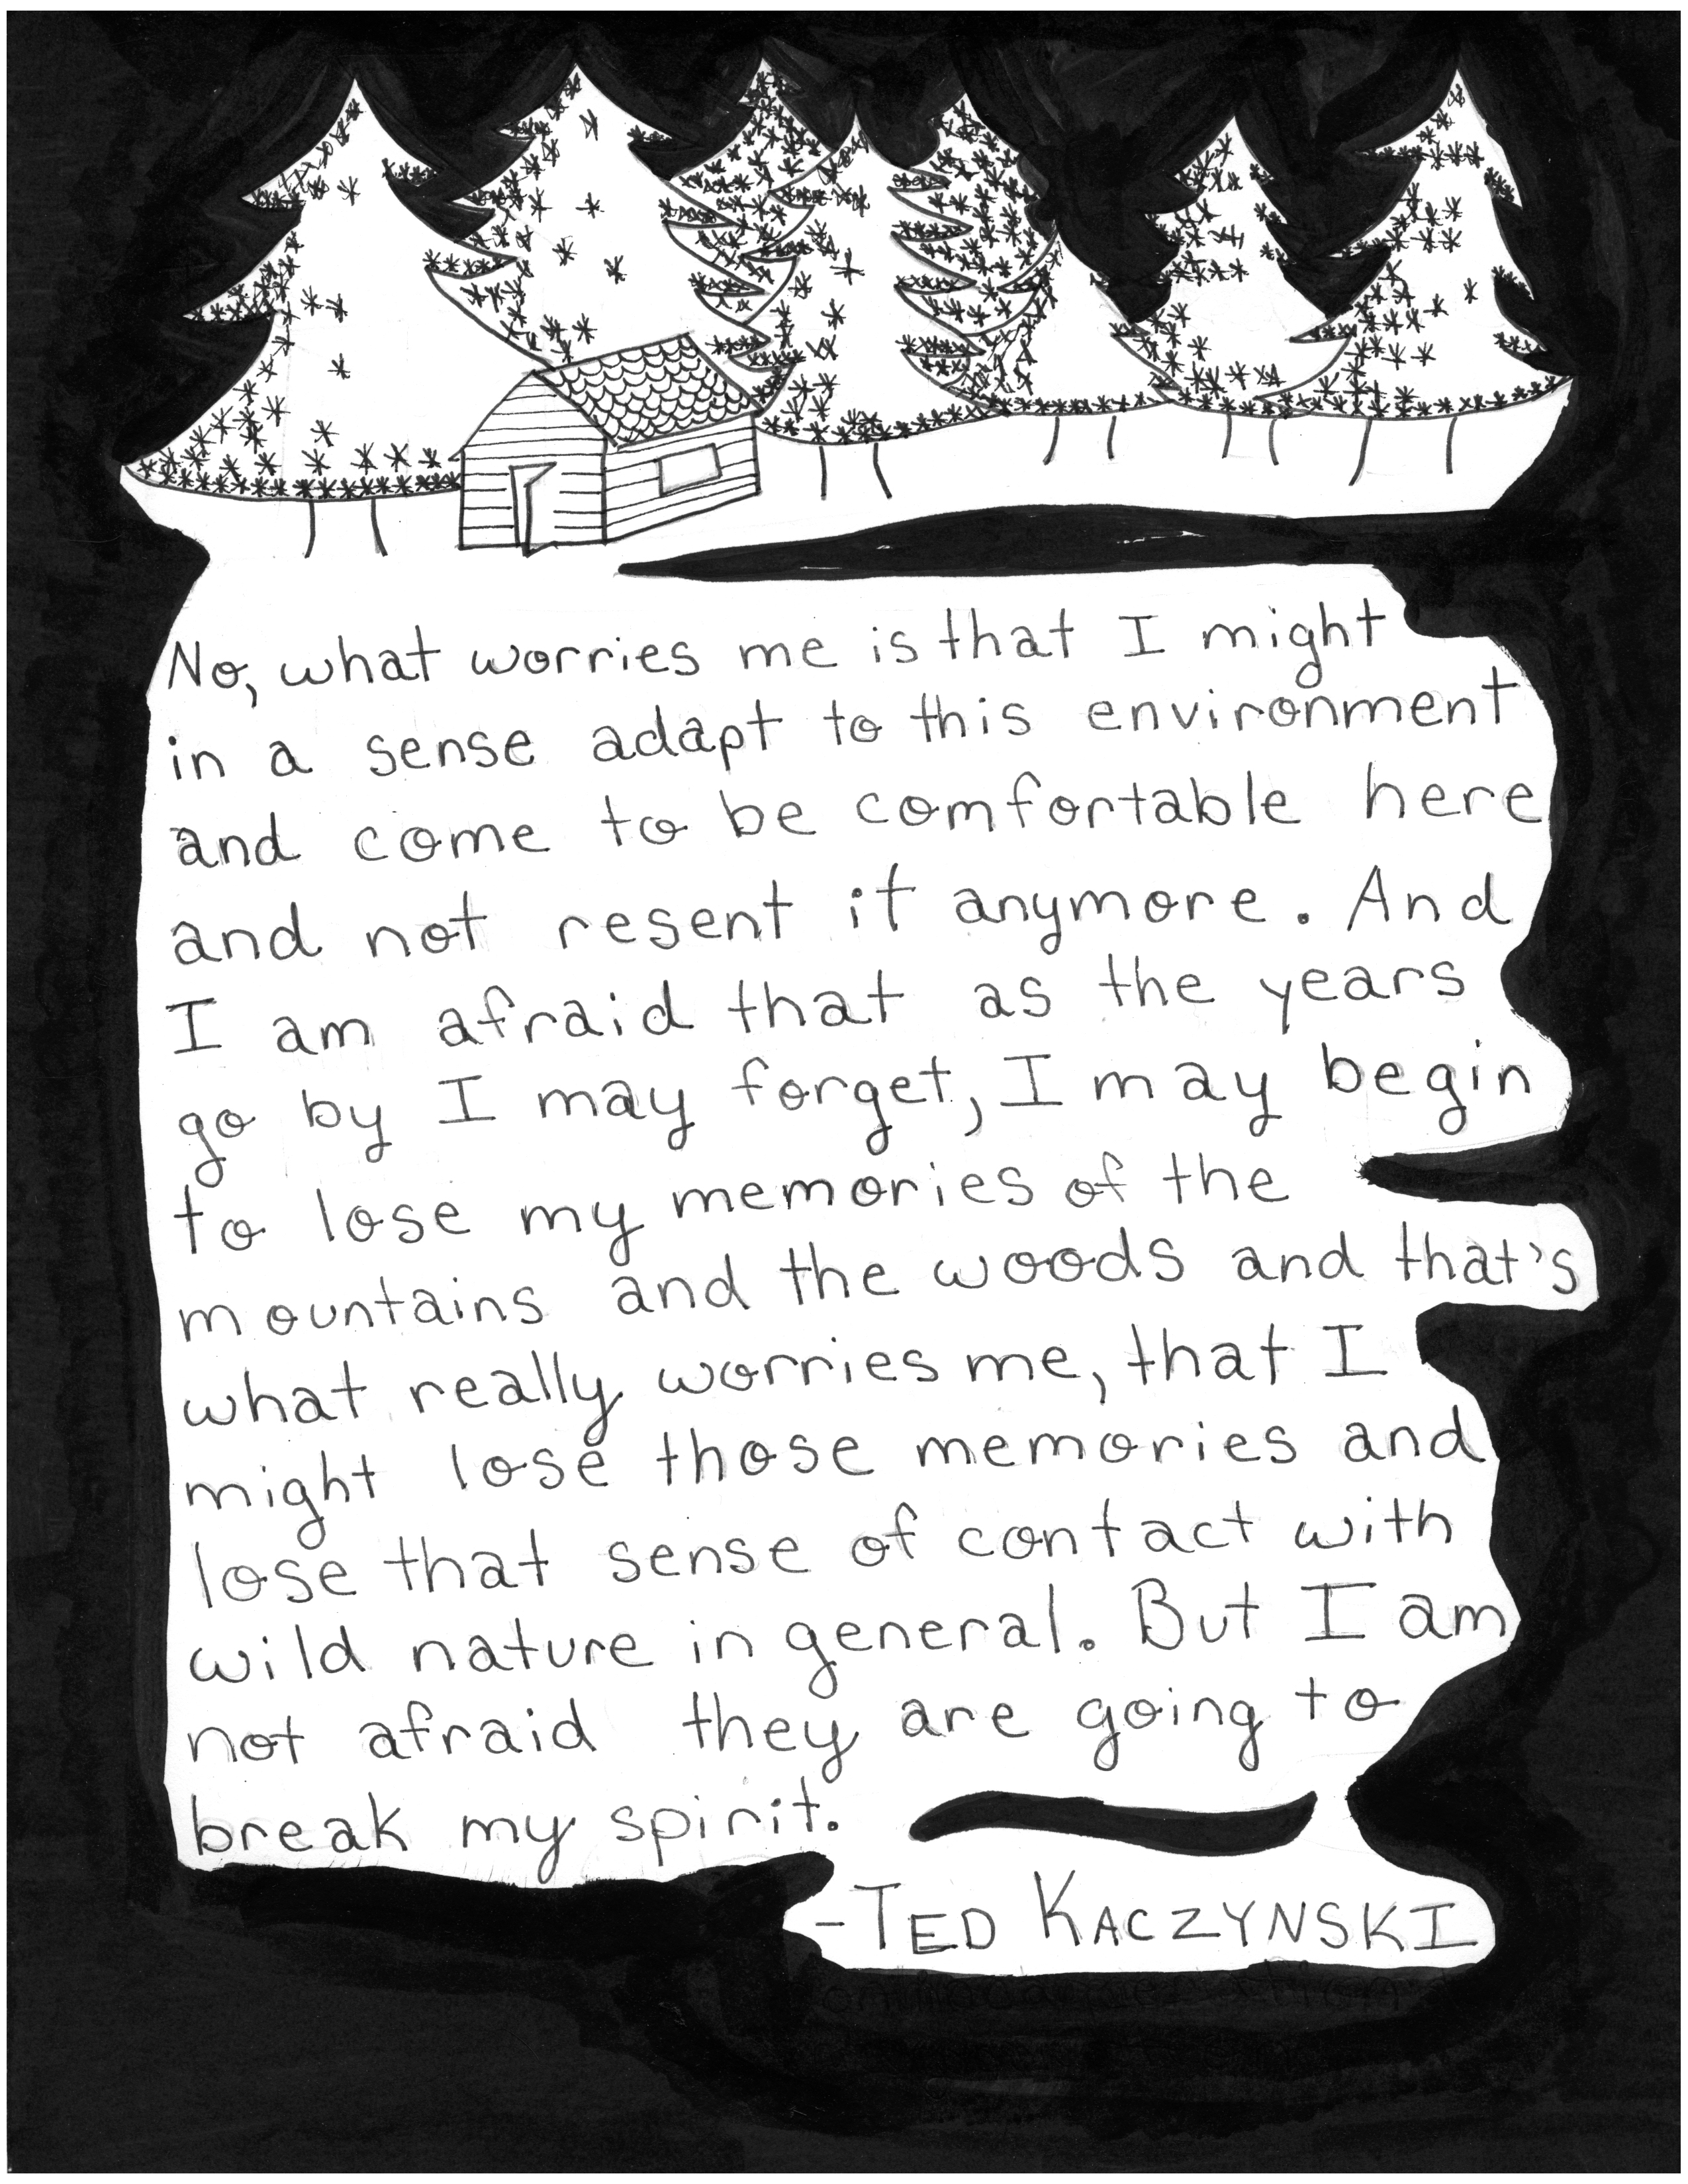 No, what worries me is that I might
in a sense adapt to this environment
and come to be comfortable here
and not resent it anymore. And
I am afraid that as the years
go by I may forget, I may begin
to lose my memories of the
mountains and the woods and that's
what really worries me, that I
might lose those memories and
lose that sense of contact with
wild nature in general. But I am
not afraid they are going to
break my spirit.
-TED KACZYNSKI